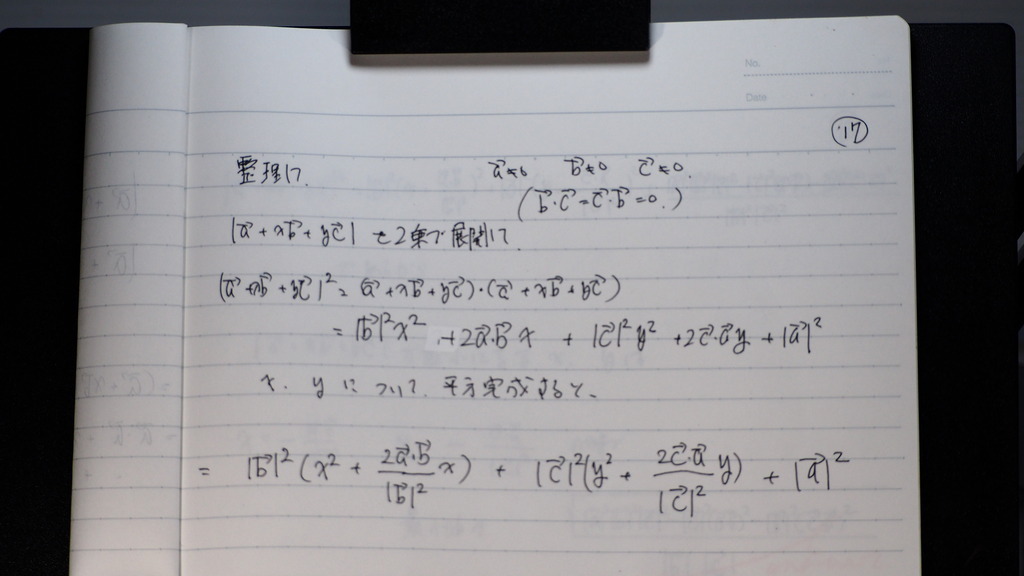 No.
Date
⑰
整理して. a⃗≠0 b⃗≠0 c⃗≠0.
(b⃗・c⃗=c⃗・b⃗=0.)
|a⃗+xb⃗+yc⃗| を2乗で展開して.
|a⃗+xb⃗+yc⃗|²=(a⃗+xb⃗+yc⃗)・(a⃗+xb⃗+yc⃗)
=|b⃗|²x²+2a⃗・b⃗x+|c⃗|²y²+2c⃗・a⃗y+|a⃗|²
x.yについて.平方完成すると、
=|b⃗|²(x²+\frac{2a⃗・b⃗}{|b⃗|²}x)+|c⃗|²(y²+\frac{2c⃗・a⃗}{|c⃗|²}y)+|a⃗|²